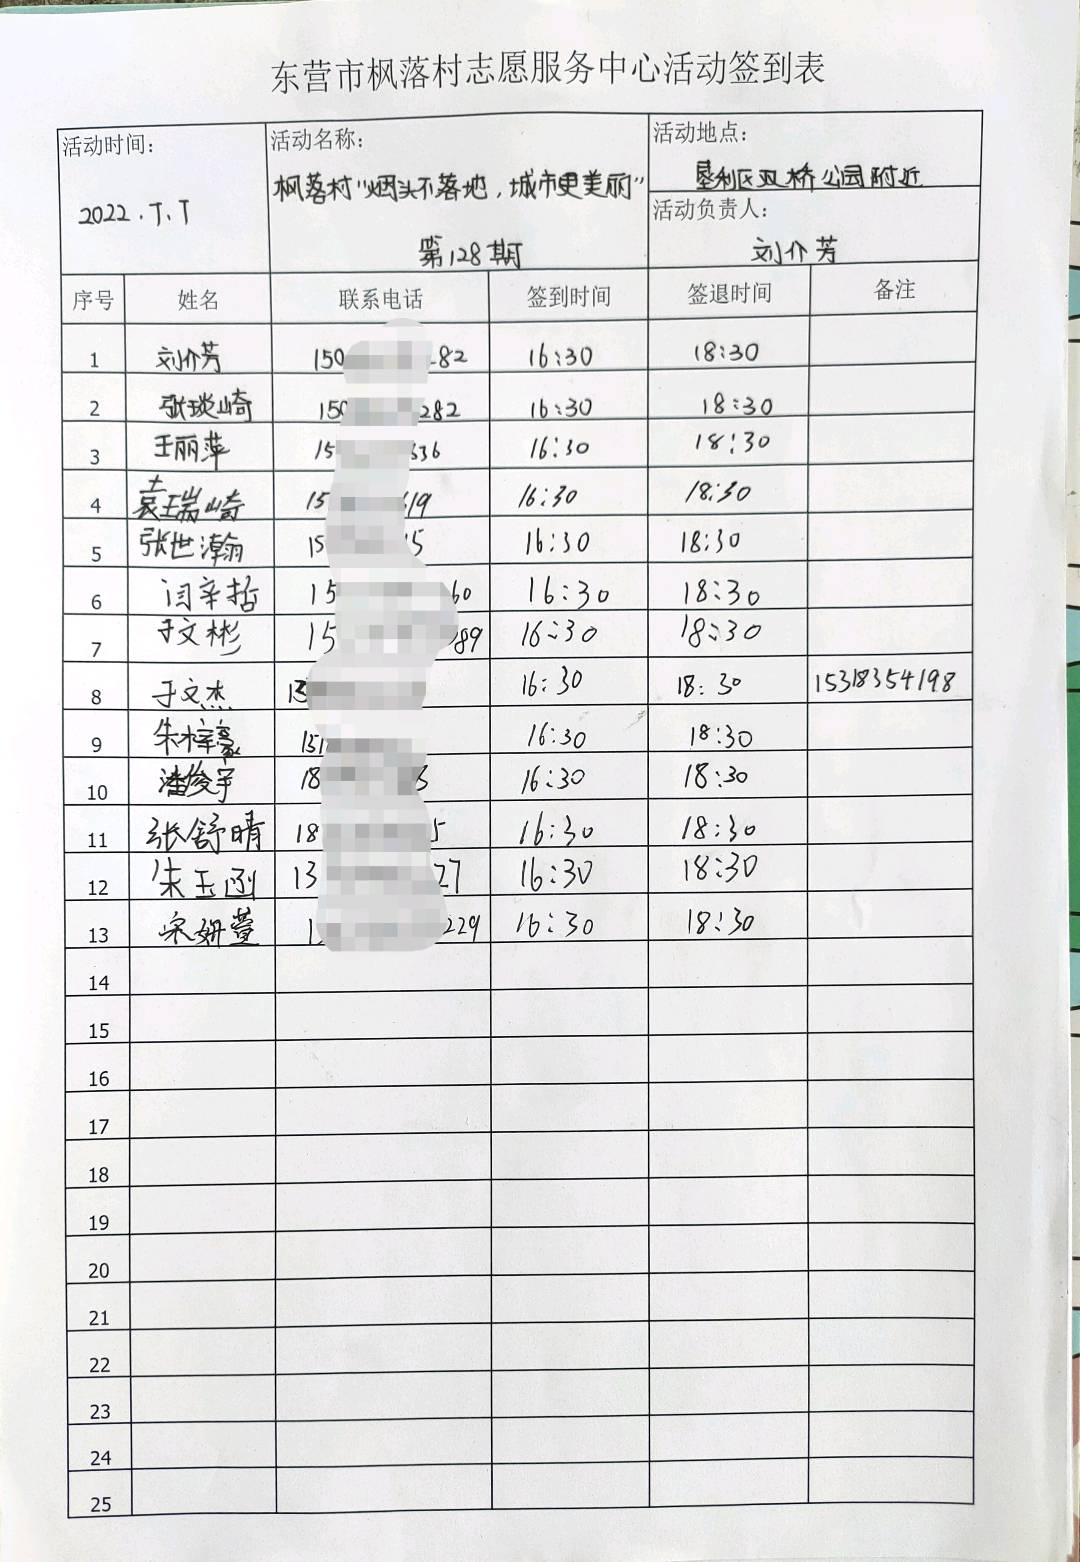 东营市枫落村志愿服务中心活动签到表
活动时间：
2022.7.7
活动名称：
枫落村“烟头不落地，城市更美丽”
第128期
活动地点：
垦利区双桥公园附近
活动负责人：
刘介芳
序号 姓名 联系电话 签到时间 签退时间 备注
1 刘介芳 150 282 16:30 18:30
2 张琰崎 150 282 16:30 18:30
3 王丽萍 15 636 16:30 18:30
4 袁瑞崎 15 619 16:30 18:30
5 张世瀚 15 5 16:30 18:30
6 闫辛哲 15 60 16:30 18:30
7 于文彬 15 89 16:30 18:30
8 于文杰 13 16:30 18:30 15318354198
9 朱梓豪 151 16:30 18:30
10 潘俊宇 18 3 16:30 18:30
11 张舒晴 18 5 16:30 18:30
12 朱玉函 13 27 16:30 18:30
13 宋妍萱 1 229 16:30 18:30
14
15
16
17
18
19
20
21
22
23
24
25